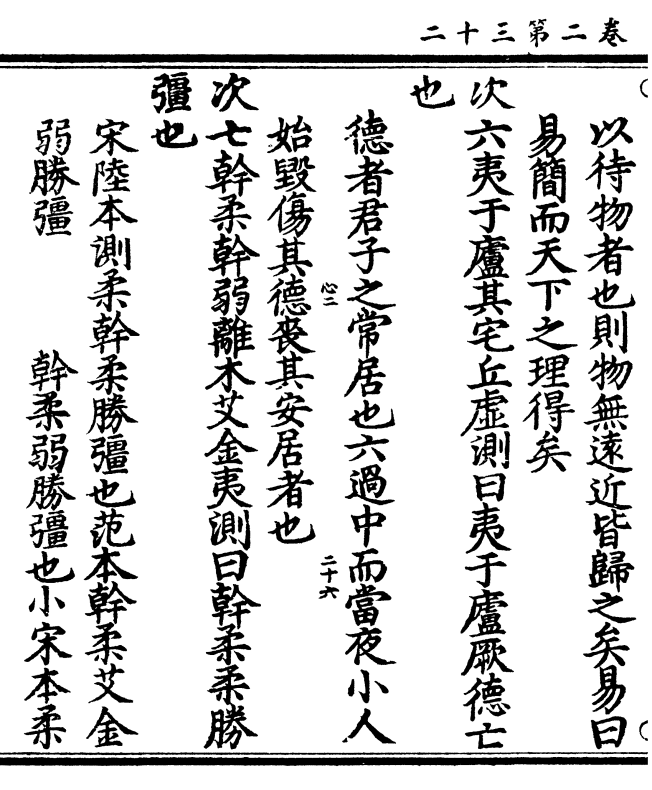 卷二第三十二
以待物者也則物無遠近皆歸之矣易曰
易簡而天下之理得矣
次六夷于廬其宅丘虛測曰夷于廬厥德亡
也
德者君子之常居也六過中而當夜小人
心二
二十六
始毀傷其德喪其安居者也
次七幹柔幹弱離木艾金夷測曰幹柔柔勝
彊也
宋陸本測柔幹柔勝彊也范本幹柔艾金
弱勝彊 幹柔弱勝彊也小宋本柔